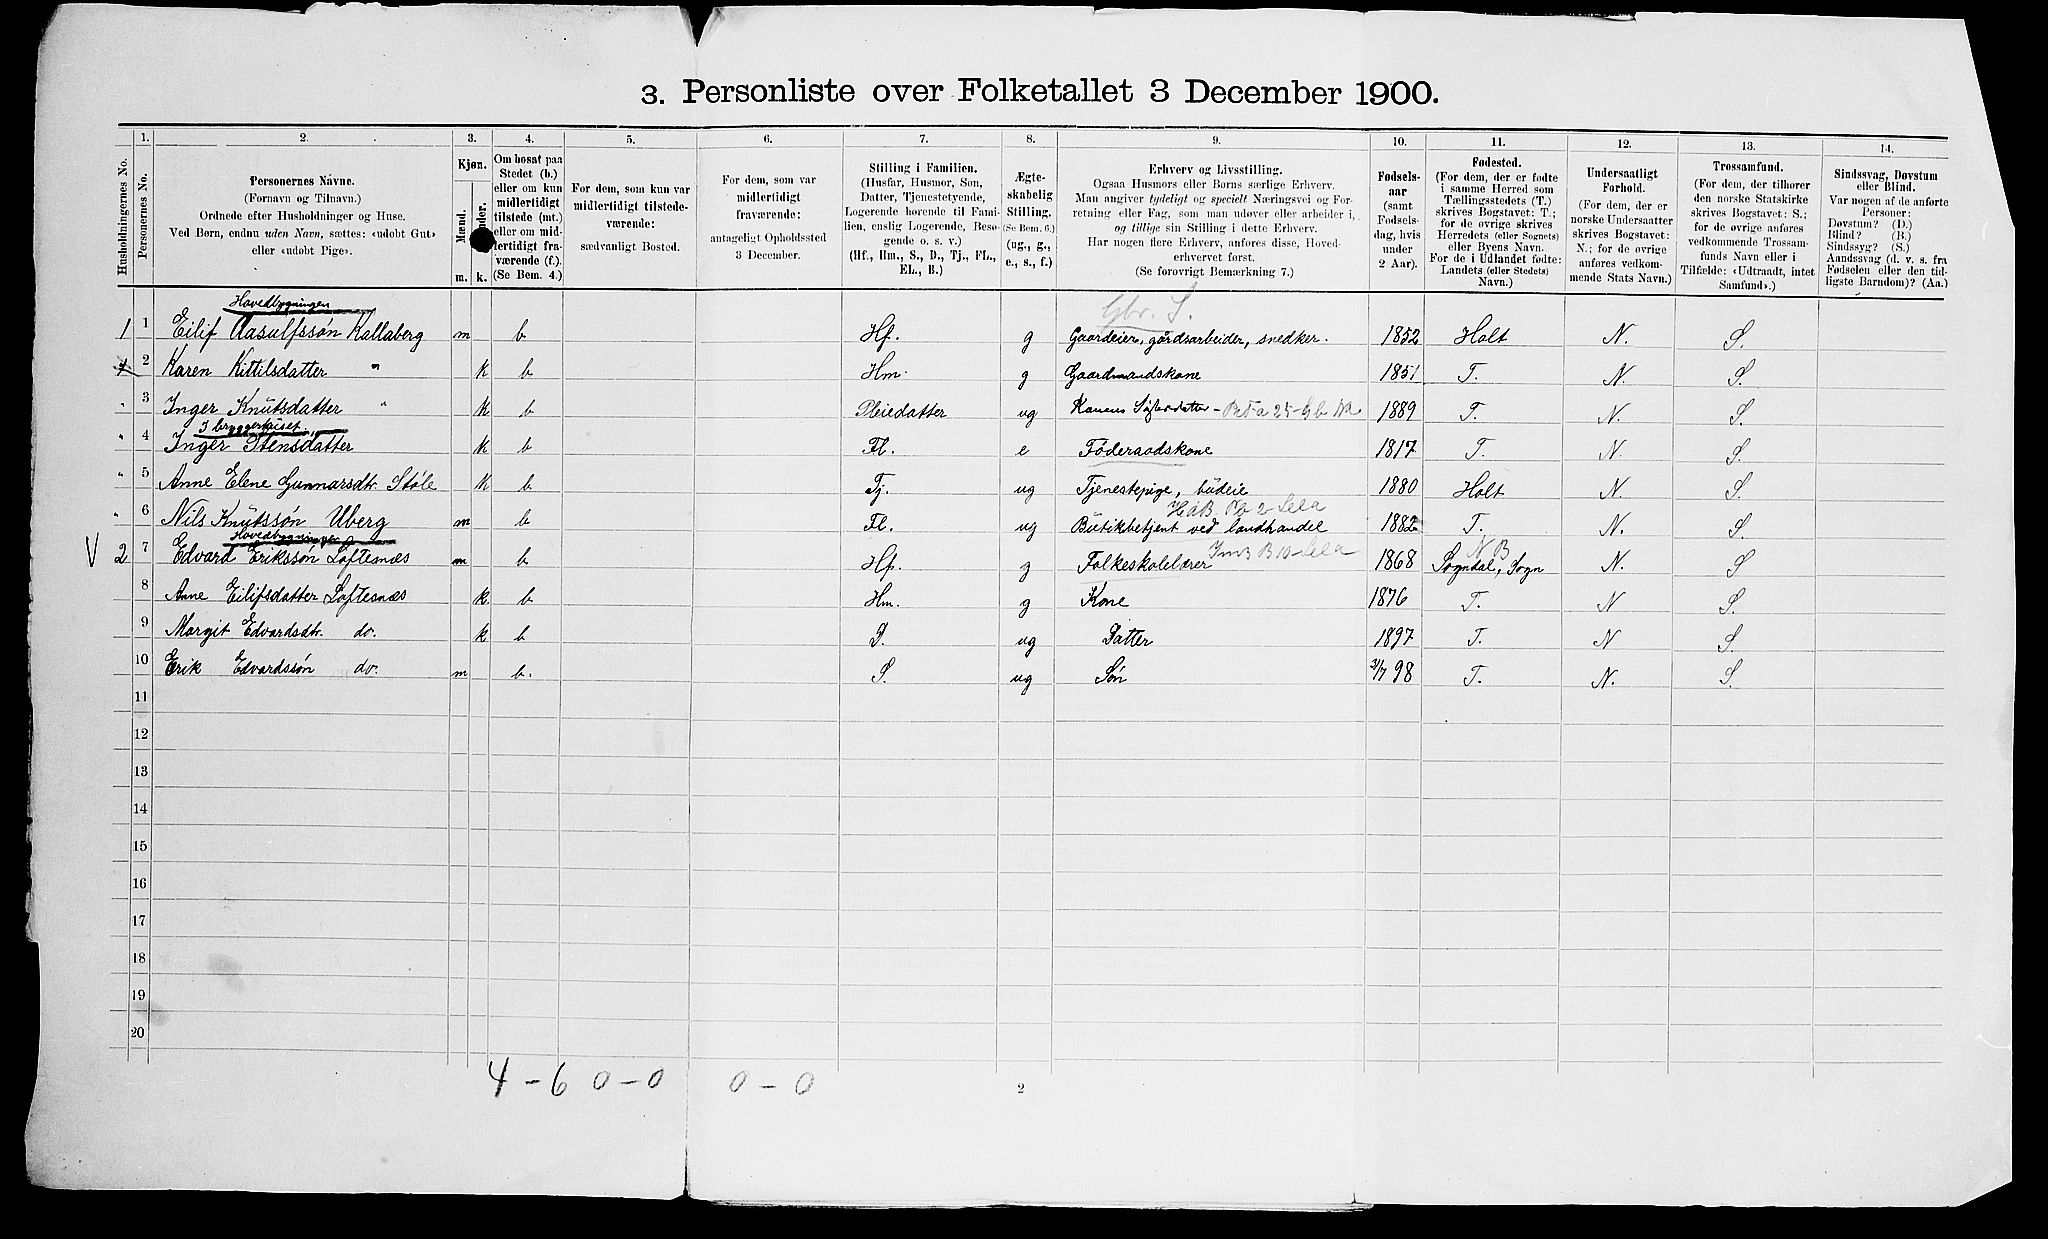 3. Personliste over Folketallet 3 December 1900.
Husholdningernes No.
1. Personernes No.
2. Personernes Navne.
(Fornavn og Tilnavn.)
Ordnede efter Husholdninger og Huse.
Ved Børn, endnu uden Navn, sættes: «udøbt Gut»
eller «udøbt Pige».
3. Kjøn.
Mænd.
m. k.
4. Om bosat paa
Stedet (b.)
eller om kun
midlertidigt
tilstede (mt.)
eller om mid-
lertidigt fra-
værende (f.).
(Se Bem. 4.)
5. For dem, som kun var
midlertidigt tilstede-
værende:
sædvanligt Bosted.
6. For dem, som var
midlertidigt
fraværende:
antageligt Opholdssted
3 December.
7. Stilling i Familien.
(Husfar, Husmor, Søn,
Datter, Tjenestetyende,
Logerende hørende til Fami-
lien, enslig Logerende, Besø-
gende o. s. v.)
(Hf., Hm., S., D., Tj., FL.,
EL., B.)
8. Ægte-
skabelig
Stilling.
(Se Bem. 6.)
(ug., g.,
e., s., f.)
9. Erhverv og Livsstilling.
Ogsaa Husmors eller Børns særlige Erhverv.
Man angiver tydeligt og specielt Næringsvei og For-
retning eller Fag, som man udøver eller arbeider i,
og tillige sin Stilling i dette Erhverv.
Har nogen flere Erhverv, anføres disse, Hoved-
erhvervet først.
(Se forøvrigt Bemærkning 7.)
10. Fødsels-
aar
(samt
Fødsels-
dag, hvis
under
2 Aar).
11. Fødested.
(For dem, der er fødte
i samme Herred som
Tællingsstedets (T.)
skrives Bogstavet: T.;
for de øvrige skrives
Herredets (eller Sognets)
eller Byens Navn.
For de i Udlandet fødte:
Landets (eller Stedets)
Navn.)
12. Undersaatligt
Forhold.
(For dem, der er
norske Undersaatter
skrives Bogstavet:
N.; for de øvrige
anføres vedkom-
mende Stats Navn.)
13. Trossamfund.
(For dem, der tilhører
den norske Statskirke
skrives Bogstavet: S.;
for de øvrige anføres
vedkommende Trossam-
funds Navn eller i
Tilfælde: «Udtraadt, intet
Samfund».)
14. Sindssvag, Døvstum
eller Blind.
Var nogen af de anførte
Personer:
Døvstum? (D.)
Blind? (B.)
Sindssyg? (S.)
Aandssvag (d. v. s. fra
Fødselen eller den tid-
ligste Barndom)? (Aa.)
Hovedbygningen
Gbr. S.
1 1 Eilif Aasulfssøn Kallaberg m b Hf. g Gaardeier, gårdsarbeider, snedker. 1852 Holt N. S.
2 Karen Kittilsdatter " k b Hm. g Gaardmandskone 1851 T. N. S.
" 3 Inger Knutsdatter " k b Pleiedatter ug Konens Søsterdatter 1889 T. N. S.
I bryggerhuset
" 4 Inger Stensdatter k b Fl. e Føderaadskone 1817 T. N. S.
" 5 Anne Elene Gunnarsdtr. Støle k b Tj. ug Tjenestepige, budeie 1880 Holt N. S.
" 6 Nils Knutssøn Uberg m b Fl. ug Butikbetjent ved landhandel 1882 T. N. S.
Hovedbygningen
V 2 7 Edvard Erikssøn Loftesnæs m b Hf. g Folkeskolelærer 1868 Sogndal, Sogn N. S
NB
8 Anne Eilifsdatter Loftesnæs k. b Hm. g Kone 1876 T. N S.
9 Margit Edvardsdtr. do. k b D. ug Datter 1897 T. N S.
10 Erik Edvardssøn do. m b. S. ug Søn 31/7 98 T. N. S.
11
12
13
14
15
16
17
18
19
20
4 - 6 0 - 0 0 - 0
2